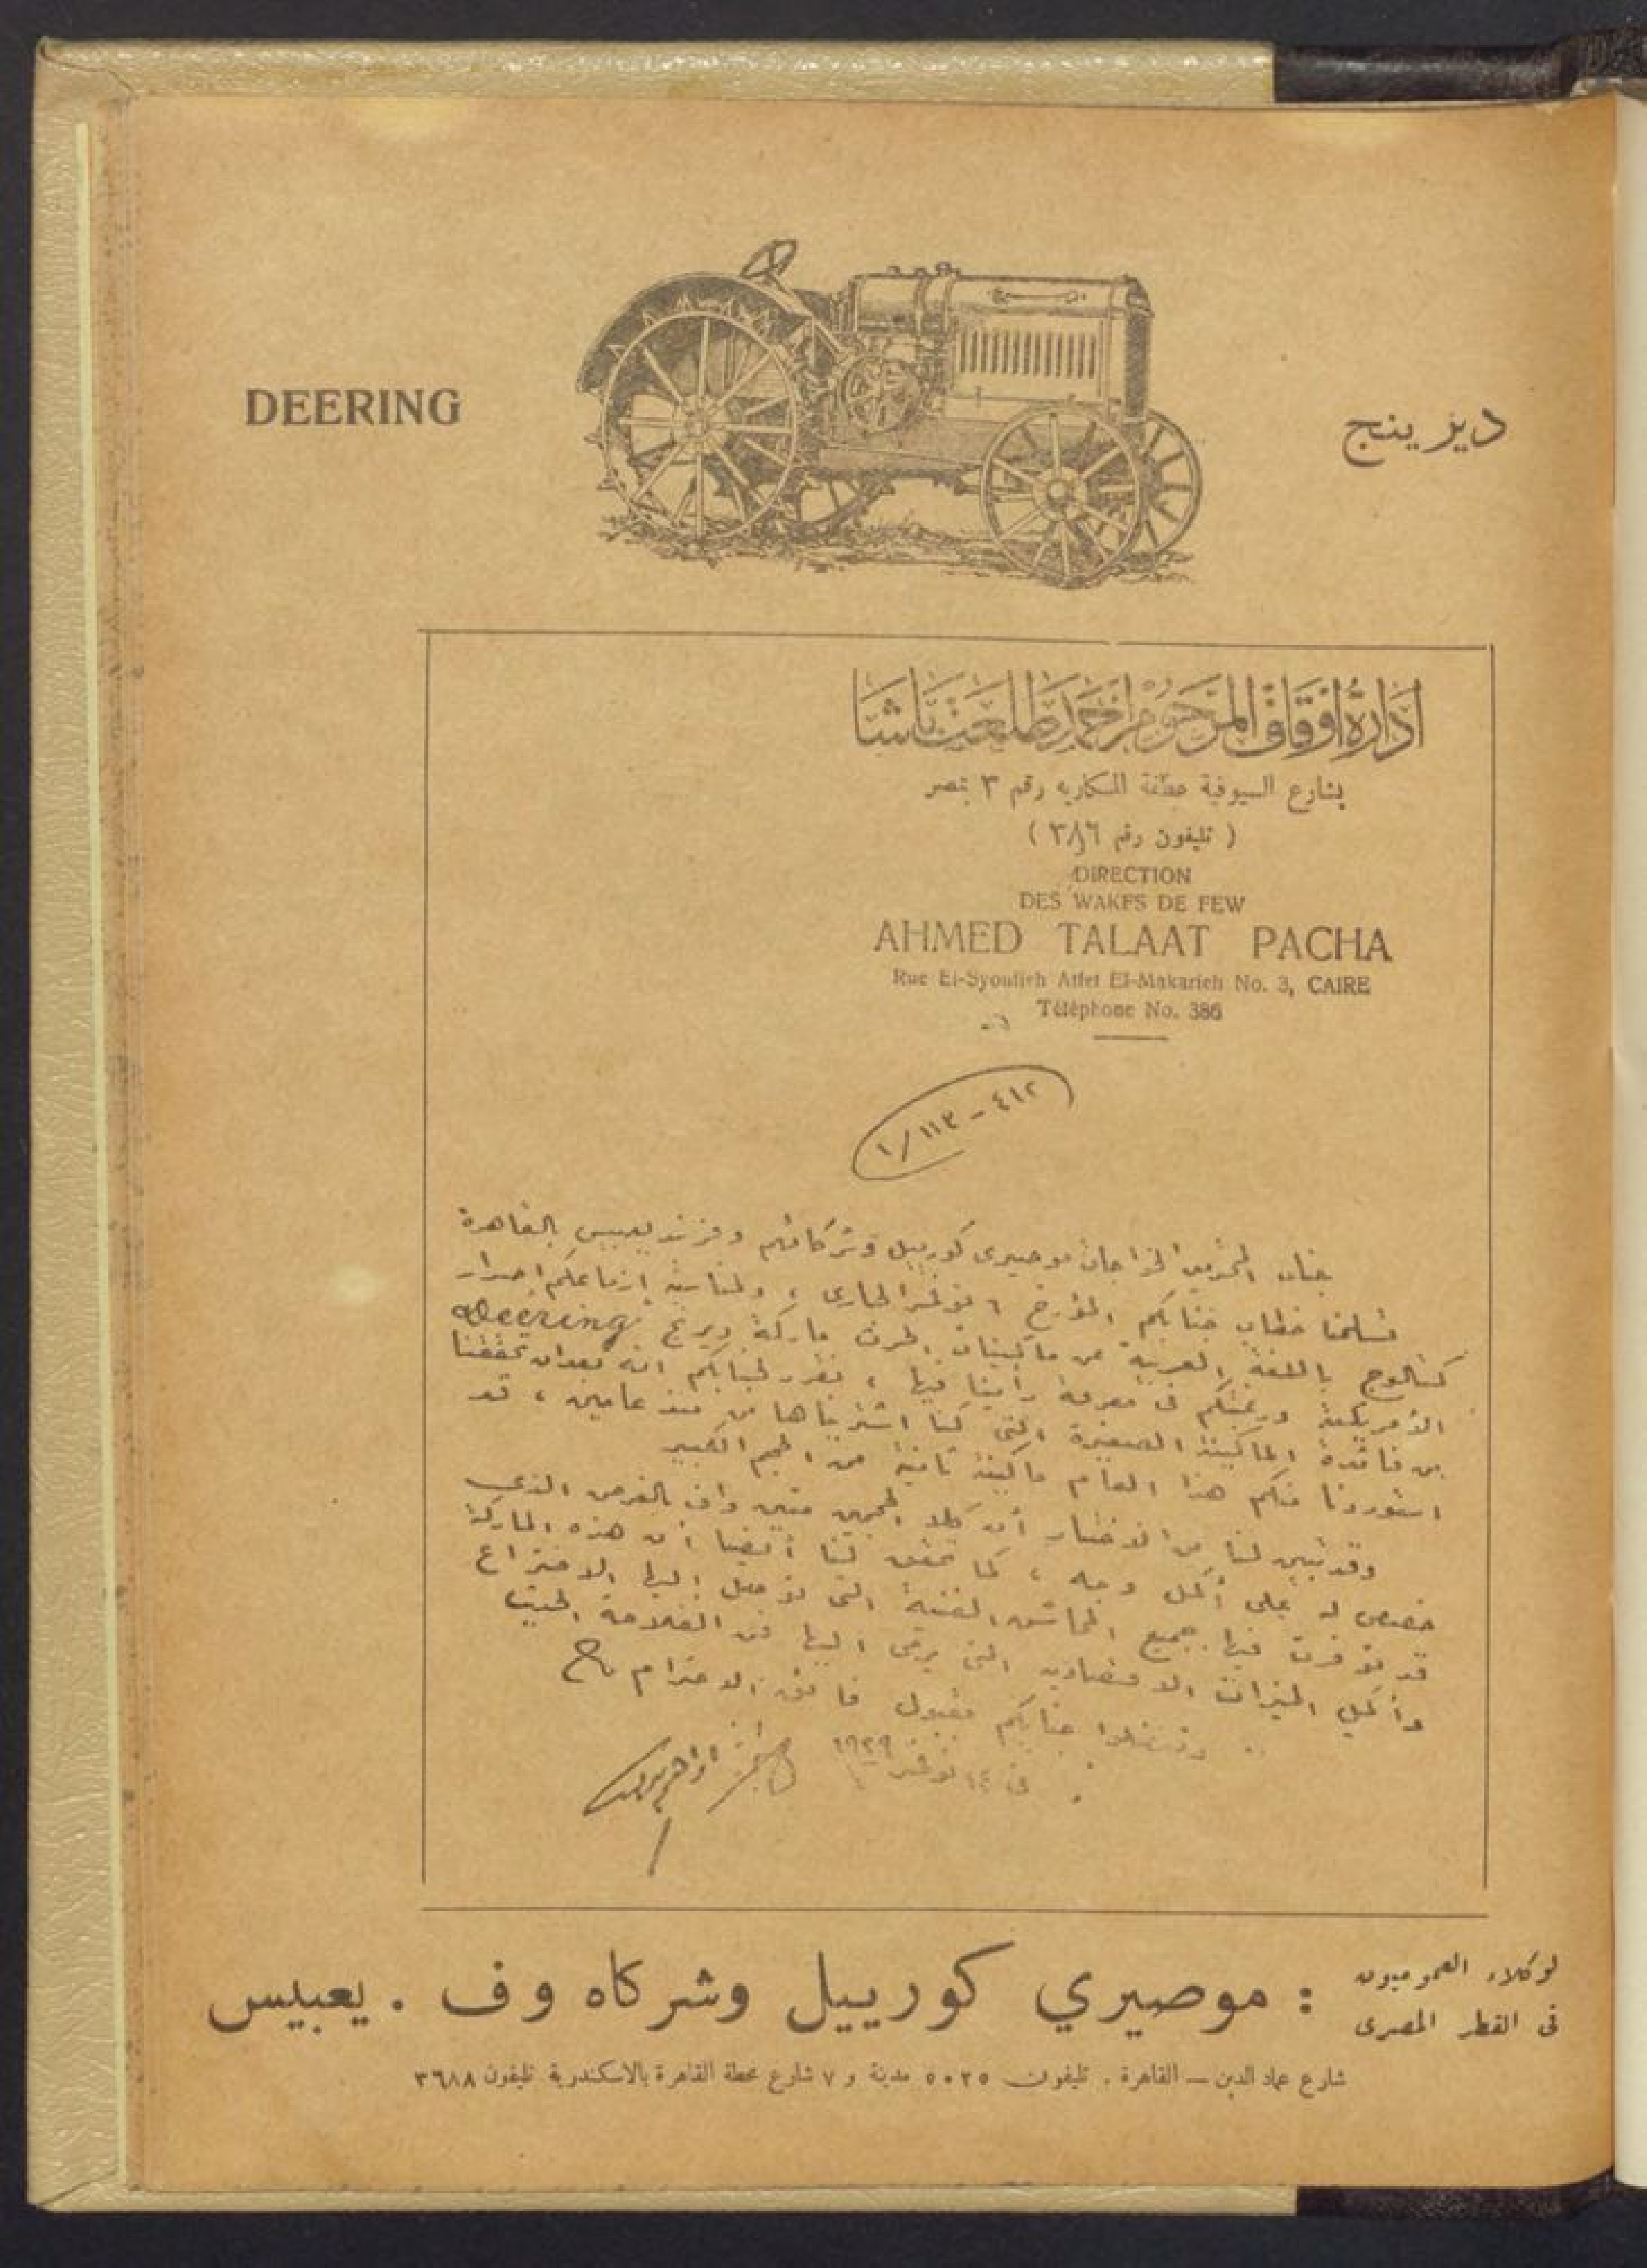 DEERING
ديرينج
ادارة اوقاف المرحوم احمد طلعت باشا
بشارع السيوفية عطفة المسكاريه رقم ٣ بمصر
( تليفون رقم ٣٨٦ )
DIRECTION
DES WAKFS DE FEW
AHMED TALAAT PACHA
Rue El-Syoufieh Atfet El-Makarieh No. 3, CAIRE
Téléphone No. 386
٤١٢ - ١١٣ / ١
جناب المحترمين الخواجات موصيرى كورييل وشركائهم وفرند يعبيس بالقاهرة
تسلمنا خطاب جنابكم المؤرخ ٦ نوفمبر الجارى ، ولمناسبة ازماعكم اصدار
كتالوج باللغة العربية عن ماكينات الحرث ماركة ديرنج Deering
الأمريكية ورغبتكم فى معرفة رأينا فيها ، نقرر لجنابكم انه بعد ان تحققنا
من فائدة الماكينة الصغيرة التى كنا اشتريناها من منذ عامين ، قد
استوردنا منكم هذا العام ماكينة ثانية من الحجم الكبير
وقد تبين لنا من الاختبار أن كلا الحجمين متين واف بالغرض الذى
خصص له على أكمل وجه ، كما تحقق لنا أيضا أن هذه الماركة
قد توفرت فيها جميع المحاسن الفنية التى توصل اليها الاختراع
وأكمل الميزات الاقتصادية التى يرمى اليها فن الفلاحة الحديث
وتفضلوا جنابكم بقبول فائق الاحترام
فى ١٤ نوفمبر ١٩٢٩
لوكلاء العموميون
فى القطر المصرى
: موصيري كورييل وشركاه وف . يعبيس
شارع عماد الدين — القاهرة . تليفون ٥٠٢٥ مدينة و ٧ شارع محطة القاهرة بالاسكندرية تليفون ٣٦٨٨